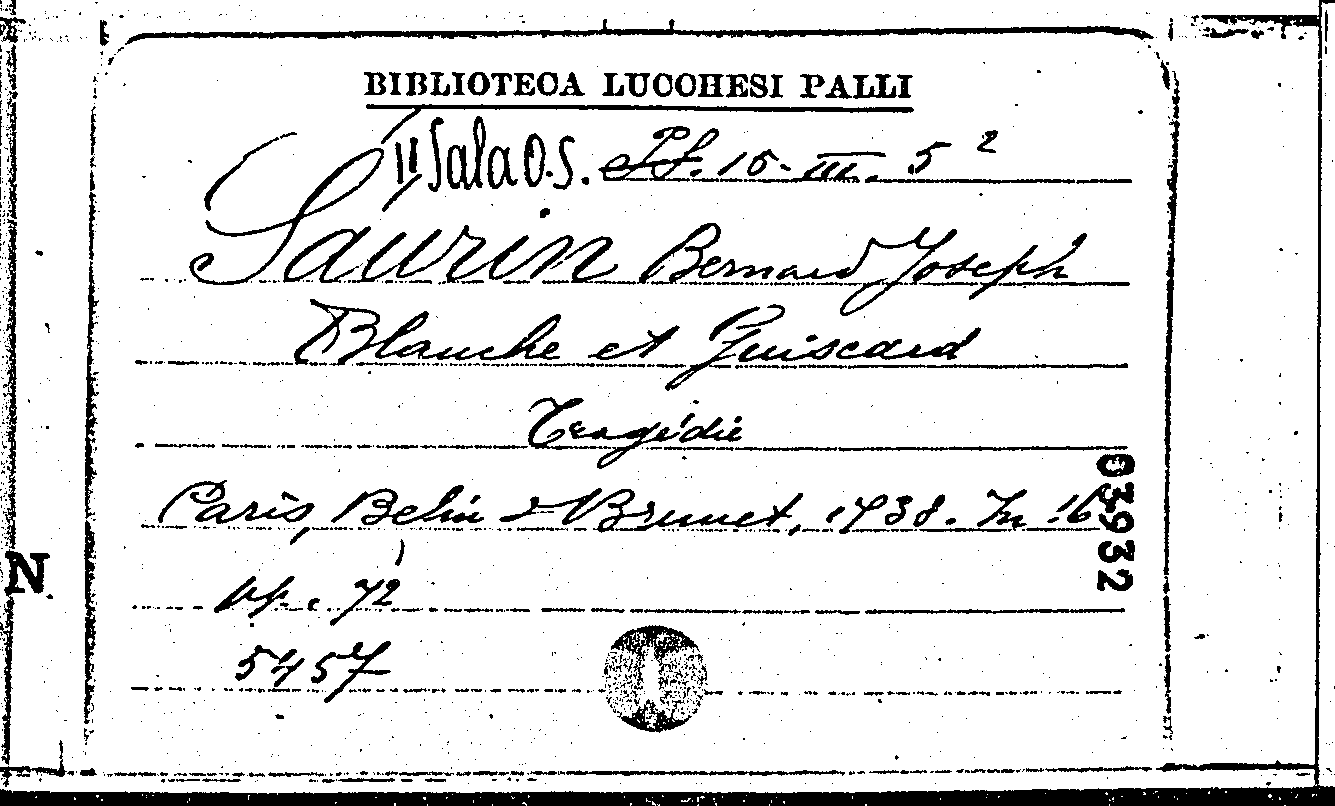 BIBLIOTECA LUCCHESI PALLI
II Sala O.S. Pt. 15-III. 5 2
Saurin Bernard Joseph
Blanche et Guiscard
Tragédie
Paris, Belin & Brunet, 1738. In 16
pp. 72
5457
03932
N